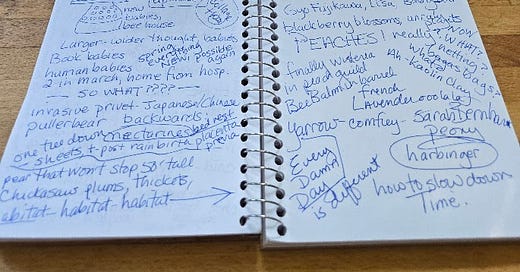 new
babies,
bee house
Larger - wider thought, babies
Book babies spring everything
human babies New! possible again
2 in march, home from hosp.
— SO WHAT????—
invasive privet - Japanese/Chinese
pullerbear backwards
one tree down nectarines bed rest
sheets, t-post rain birth placenta previa
pear that won't stop so tall
Chickasaw plums, thickets,
abitat- habitat- habitat-
Gyo Fujikawa, Lisa
blackberry blossoms,
PEACHES! really
NOW WHAT?
nothing?
finally wisteria
in peach guild
Bee Balm
Ah- Kaolin Clay
French
Lavender oo la la
yarrow- comfrey- sarah Bernhardt
Peony
harbinger
Every
Damn
Day
is different
how to slow down
Time.